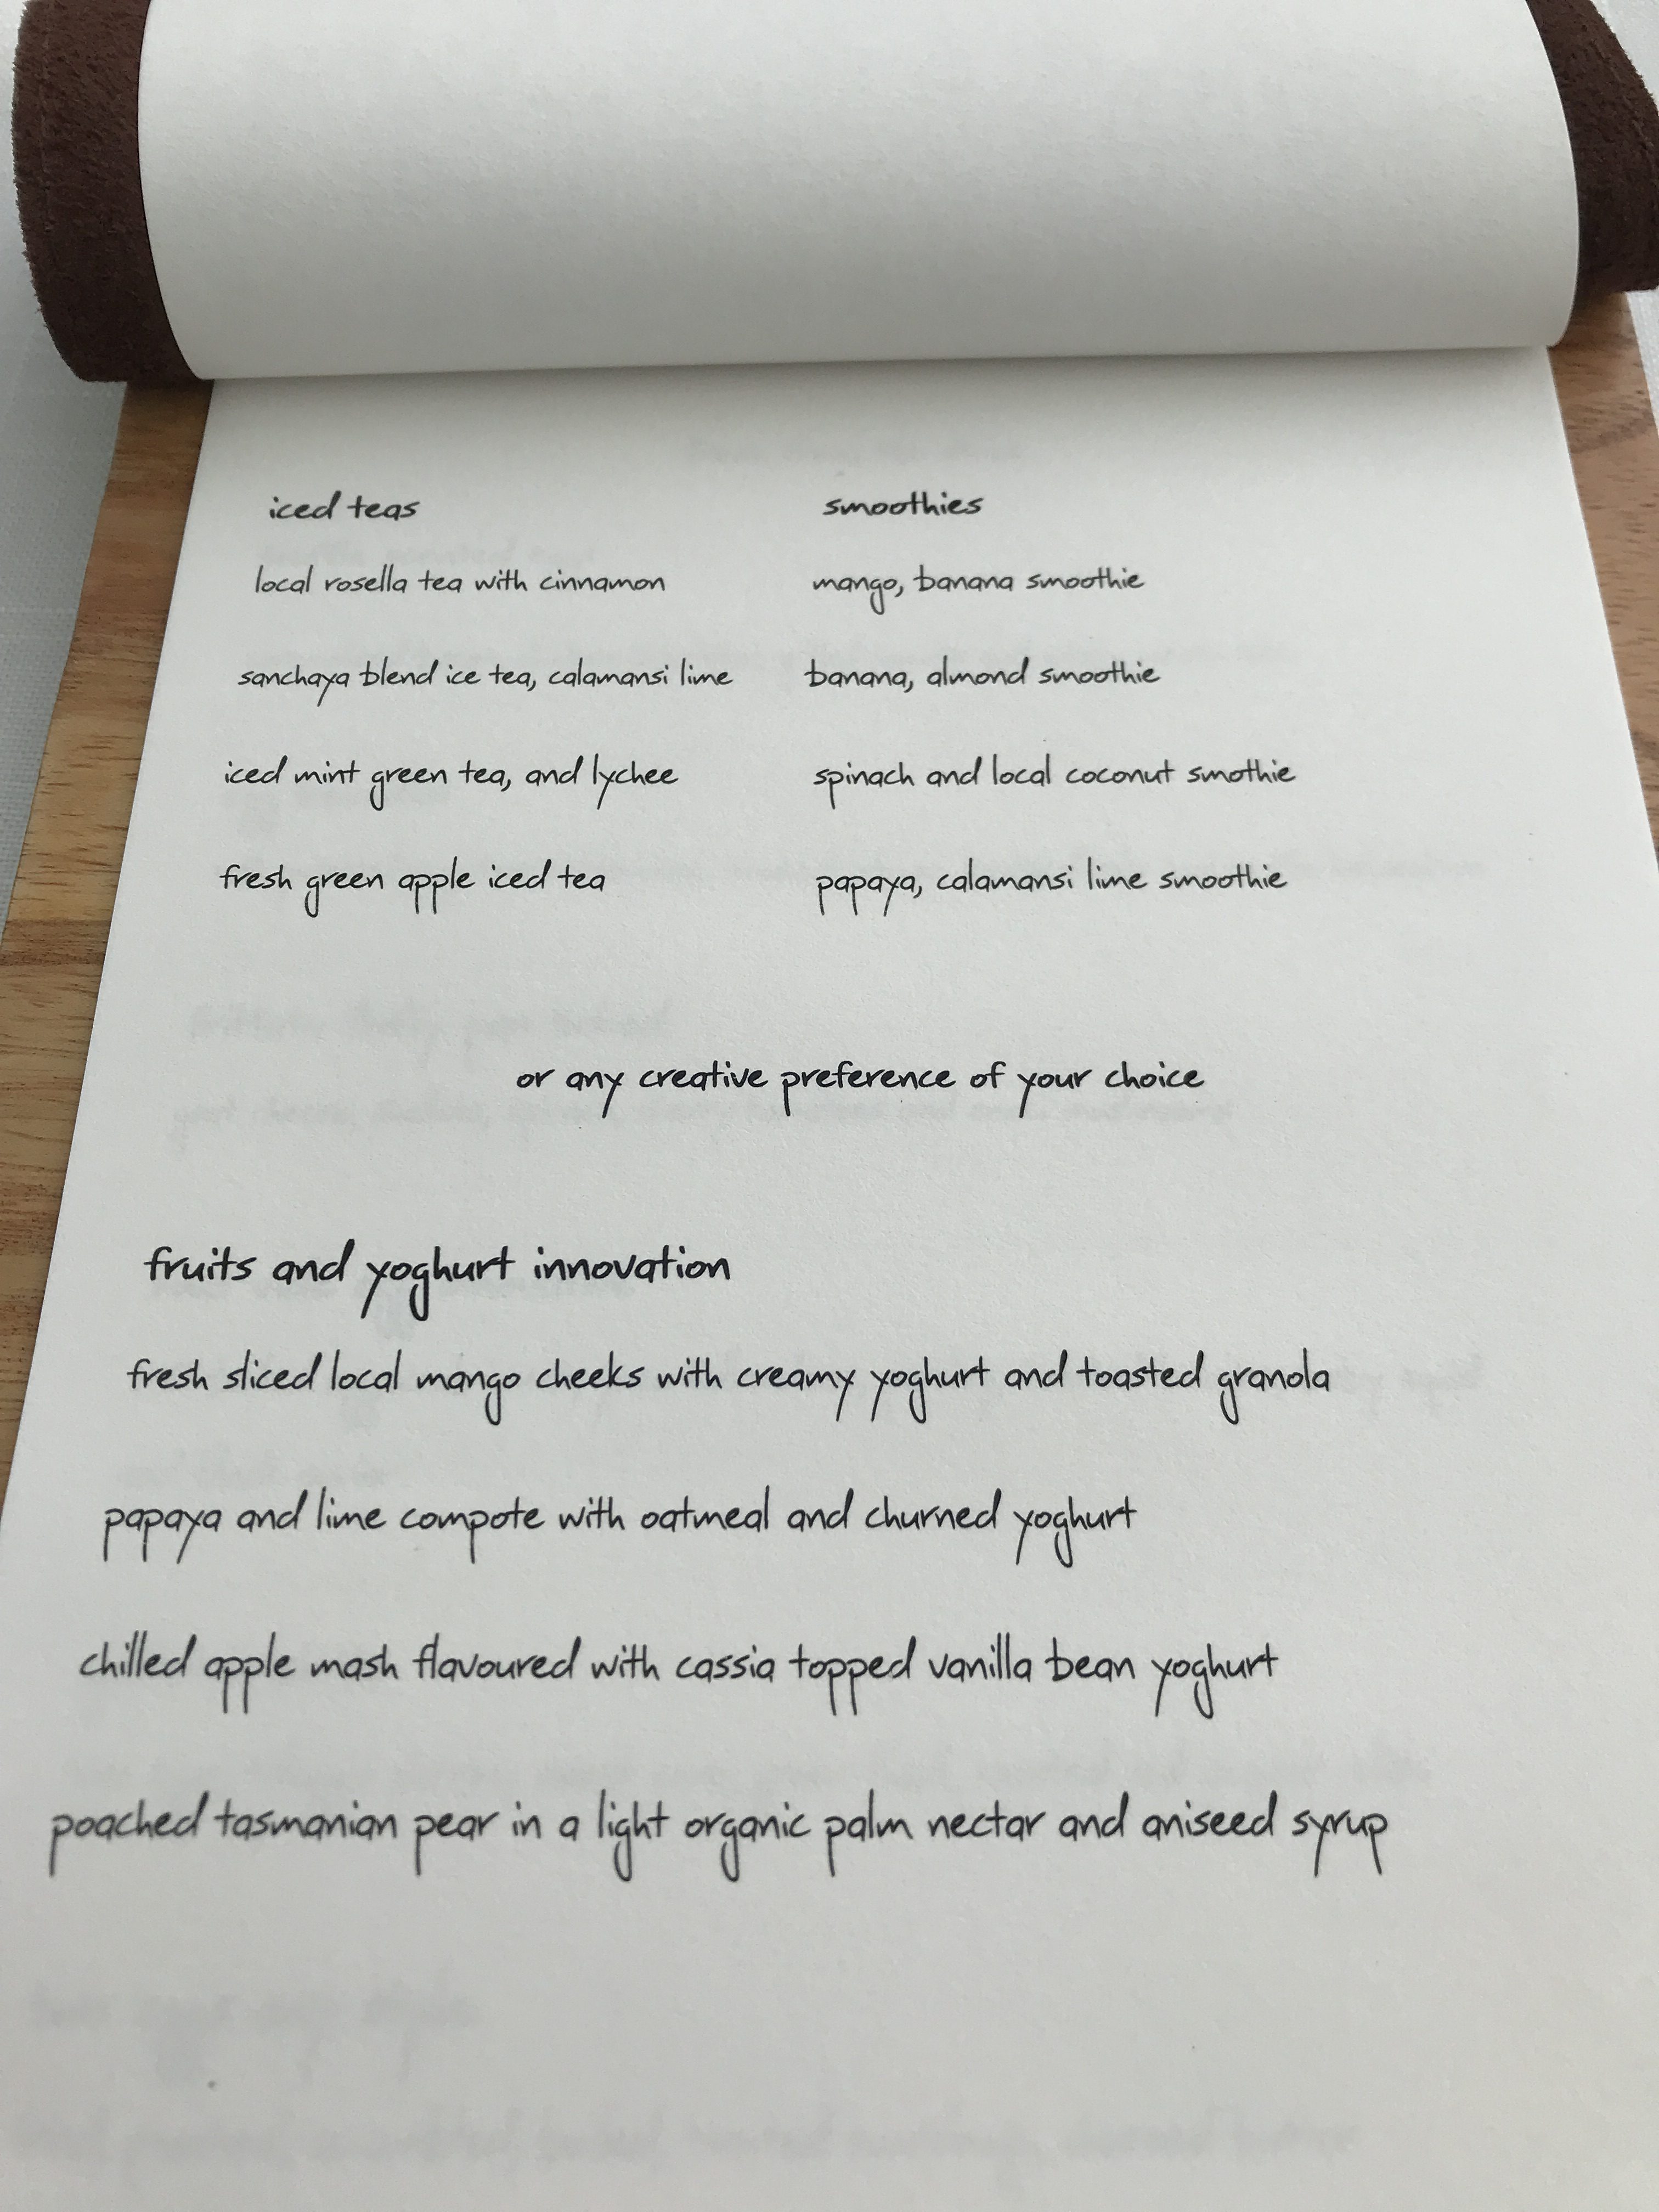 iced teas
local rosella tea with cinnamon
sanchaya blend ice tea, calamansi lime
iced mint green tea, and lychee
fresh green apple iced tea
smoothies
mango, banana smoothie
banana, almond smoothie
spinach and local coconut smothie
papaya, calamansi lime smoothie
or any creative preference of your choice
fruits and yoghurt innovation
fresh sliced local mango cheeks with creamy yoghurt and toasted granola
papaya and lime compote with oatmeal and churned yoghurt
chilled apple mash flavoured with cassia topped vanilla bean yoghurt
poached tasmanian pear in a light organic palm nectar and aniseed syrup